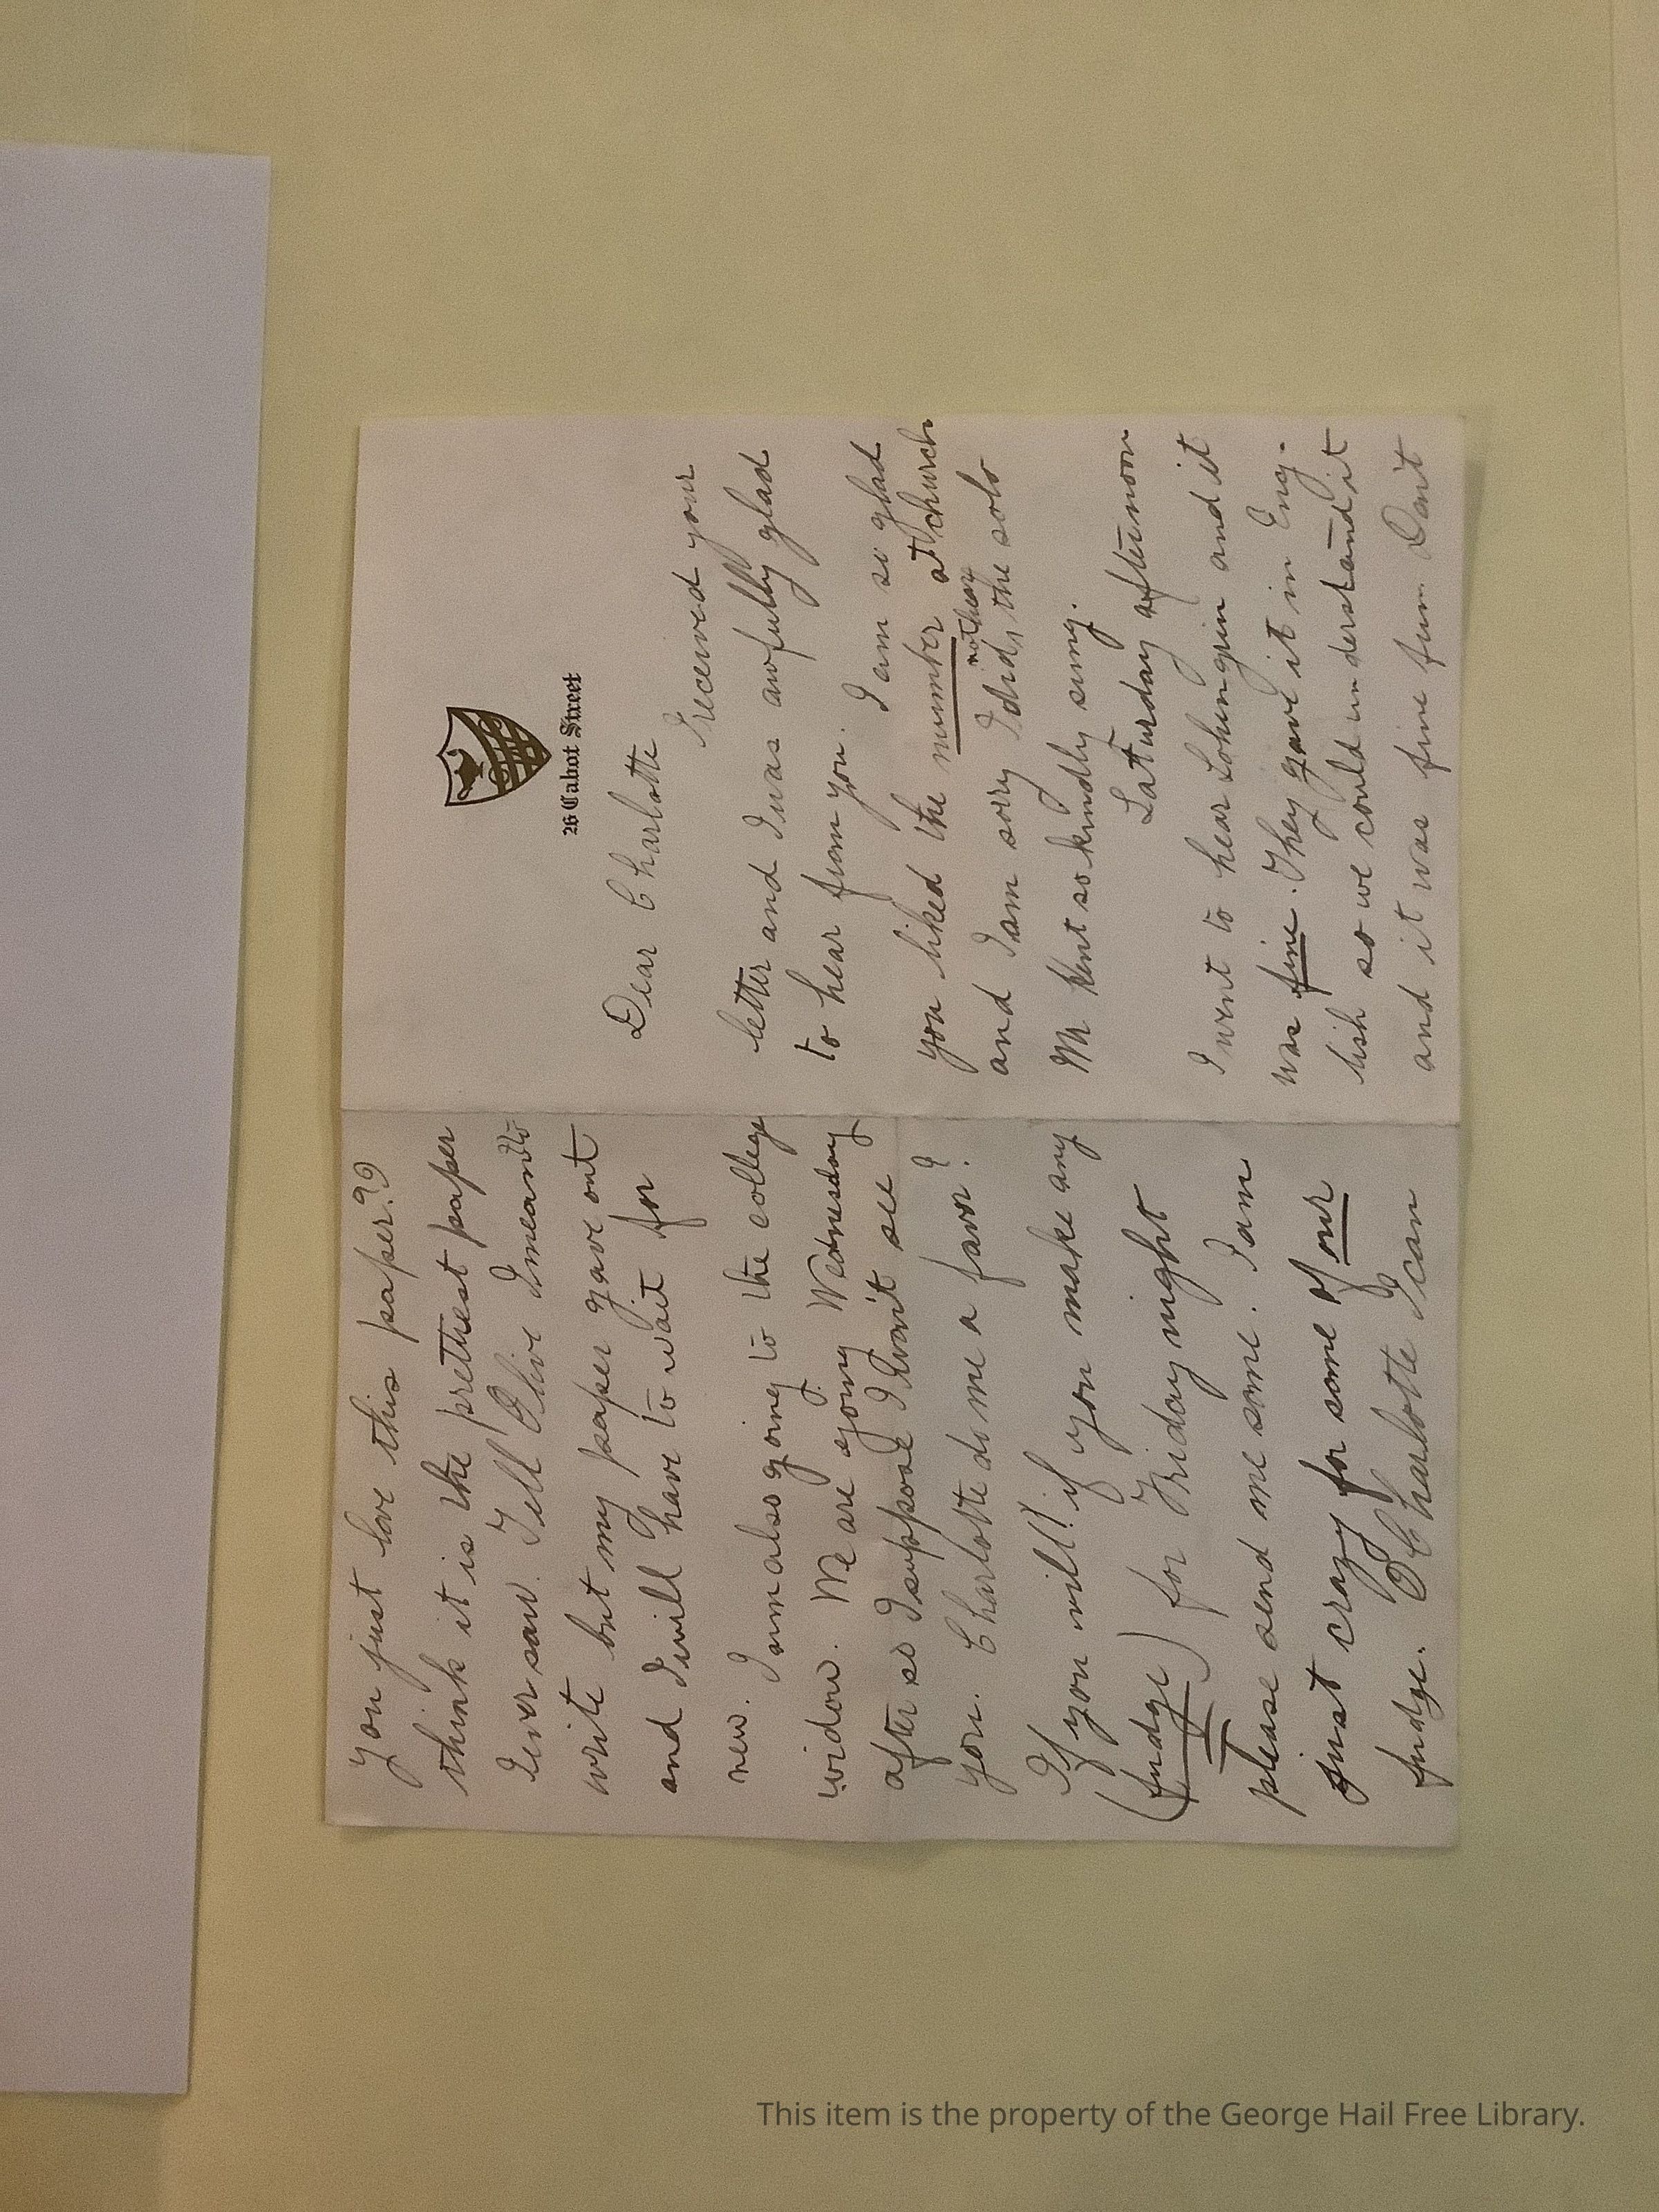 26 Cabot Street
Dear Charlotte
I received your
letter and I was awfully glad
to hear from you. I am so glad
you liked the number at church
and I am sorry I did not hear the solo
Mr Kent so kindly sung.
Saturday afternoon
I went to hear Lohengrin and it
was fine. They gave it in Eng-
lish so we could understand it
and it was fine fun. Don't
you just love this paper??
think it is the prettiest paper
I ever saw. Tell Olive I mean to
write but my paper gave out
and I will have to wait for
new. I am also going to the college
widow. We are going Wednesday
after so I suppose I won't see
you. Charlotte do me a favor?
If you will! if you make any
(fudge) for Friday night
please send me some. I am
just crazy for some of our
fudge. O Charlotte I can
This item is the property of the George Hail Free Library.